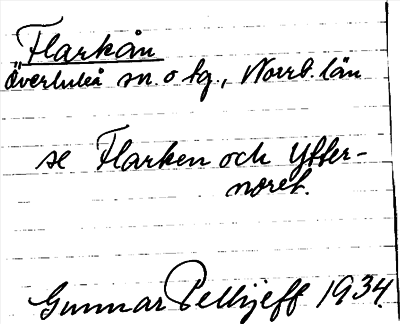 Flarkån
Överluleå sn. o tg., Norrb. län
se Flarken och Ytter-
noret.
Gunnar Pellijeff 1934.